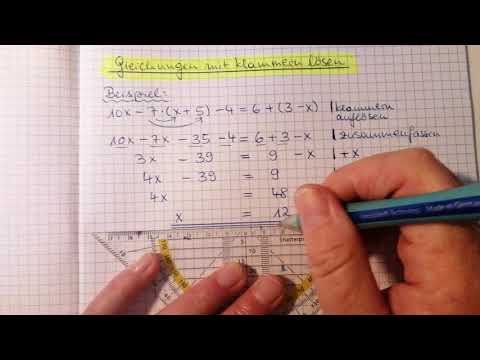 Gleichungen mit Klammern lösen
Beispiel:
10x - 7·(x + 5) - 4 = 6 + (3 - x) | Klammern auflösen
10x - 7x - 35 - 4 = 6 + 3 - x | zusammenfassen
3x - 39 = 9 - x | + x
4x - 39 = 9
4x = 48
x = 12